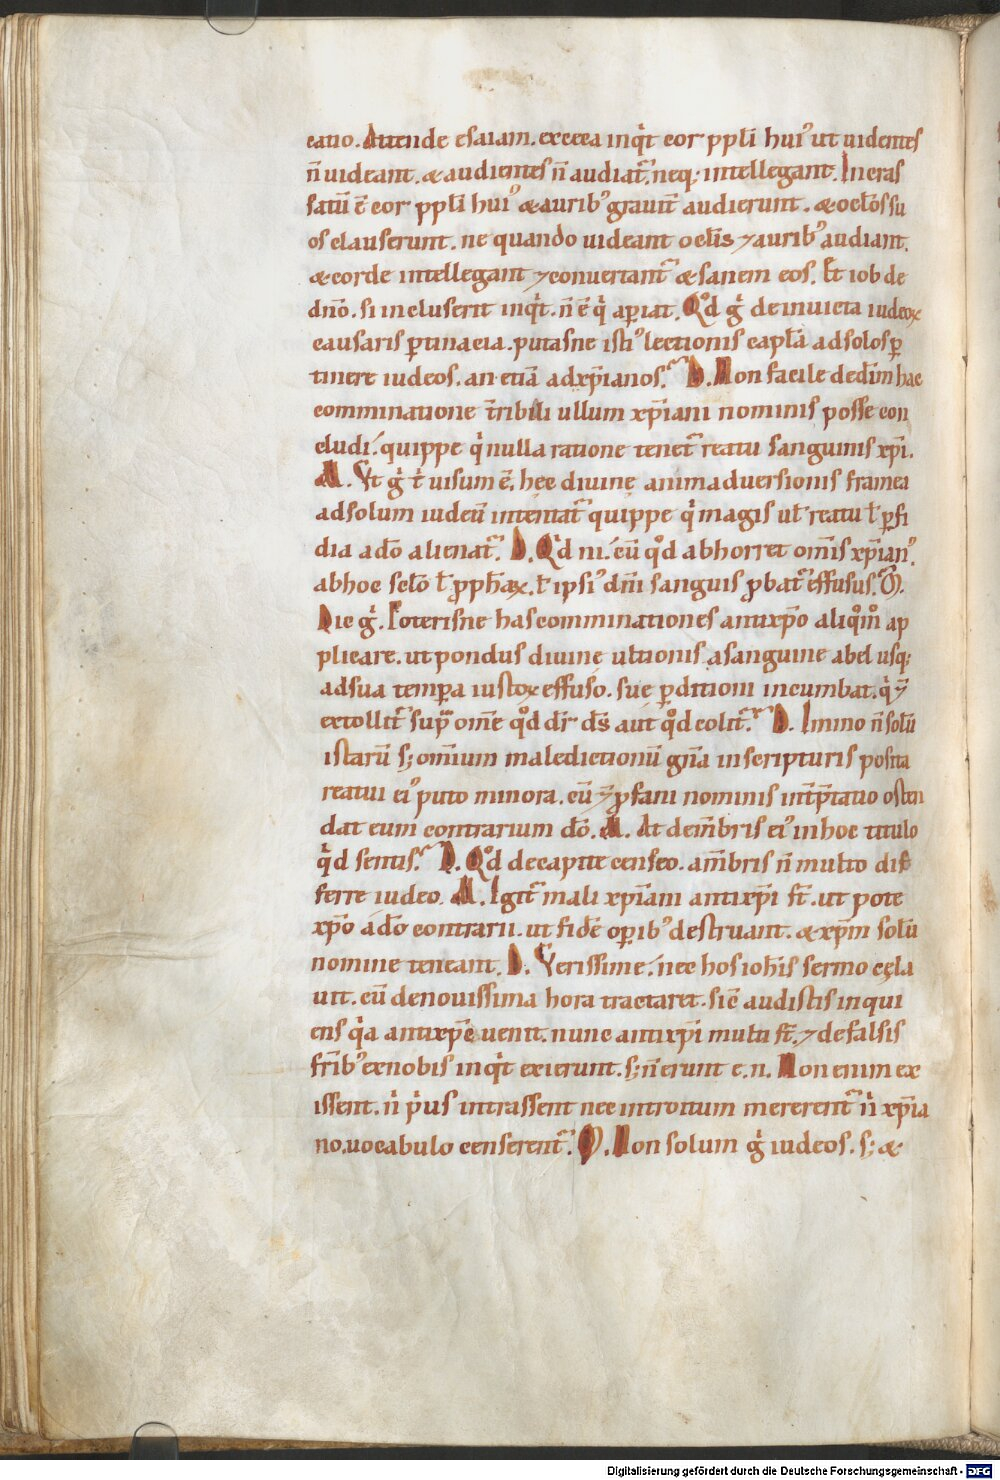 catio. Attende esaiam. exceca inq̇t cor pp̄li hui᾽ ut uidentes
n̄ uideant. & audientes n̄ audiat᷑. neq; intellegant. Incras
satū ē cor pp̄li hui᾽ & aurib᾽ grauit̄ audierunt. & oc̄los su
os clauserunt. ne quando uideant oc̄lis ⁊ aurib᾽ audiant.
& corde intellegant ⁊ conuertant᷑ & sanem eos. Et iob de
dn̄o. si incluserit inq̇t. n̄ ē q̇ aꝑiat. Qͦd g̊ deinuicta iudeoꝝ
causaris ꝑtinacia. putasne isti᾽ lectionis capl̄a adsolos ꝑ
tinere iudeos. an etiā adxp̄ianos. D. Non facile dedim̄ hac
comminatione t̄ribili ullum xp̄iani nominis posse con
cludi. quippe q̇ nulla ratione tenet᷑ reatu sanguinis xp̄i.
M. Vt g̊ t̊ uisum ē. hec diuine animaduersionis framea
adsolum iudeū intentat᷑ quippe q̇ magis ul̄ reatu l̄ ꝑfi
dia a dō alienat᷑. D. Qͥd ni. cū qͦd abhorret om̄is xp̄ian᾽.
abhoc sc̄lo l̄ ꝓph̄aꝝ. l̄ ipsi᾽ dn̄i sanguis ꝓbat᷑ effusus. M.
Dic g̊. Poterisne has comminationes antixp̄o aliqͦm̊ ap
plicare. ut pondus diuine ultionis asanguine abel usq;
adsua tempa iustoꝝ effuso. sue ꝑditioni incumbat. q̇ ⁊
extollit᷑ sup̄ om̄e qͦd dr̄ ds̄ aut qͦd colit᷑. D. Immo n̄ solū
istarū s; om̄ium maledictionū gn̄a inscripturis posita
reatui ei᾽ puto minora. cū ⁊ ꝓfani nominis int̄p̄tatio osten
dat eum contrarium dō. M. At dem̄bris ei᾽ inhoc titulo
q̇d sentis. D. Qͦd decapite censeo. am̄bris n̄ multo dif
ferre iudeo. M. Igit᷑ mali xp̄iani antixp̄i st̄. ut pote
xp̄o a dō contrarii. ut fidē oꝑib᾽ destruant. & xp̄m solū
nomine teneant. D. Verissime. nec hos ioh̄is sermo cęla
uit. cū denouissima hora tractaret. sic̄ audistis inqui
ens q̇a antixp̄c uenit. nunc antixp̄i multi st̄. ⁊ defalsis
fr̄ib᾽ exnobis inq̇t exierunt. s; n̄ erunt e. n. Non enim ex
issent. n̊ p̊us intrassent nec introitum mererent᷑ n̊ xp̄ia
no uocabulo censerent᷑. M. Non solum g̊ iudeos. s; &
Digitalisierung gefördert durch die Deutsche Forschungsgemeinschaft - DFG